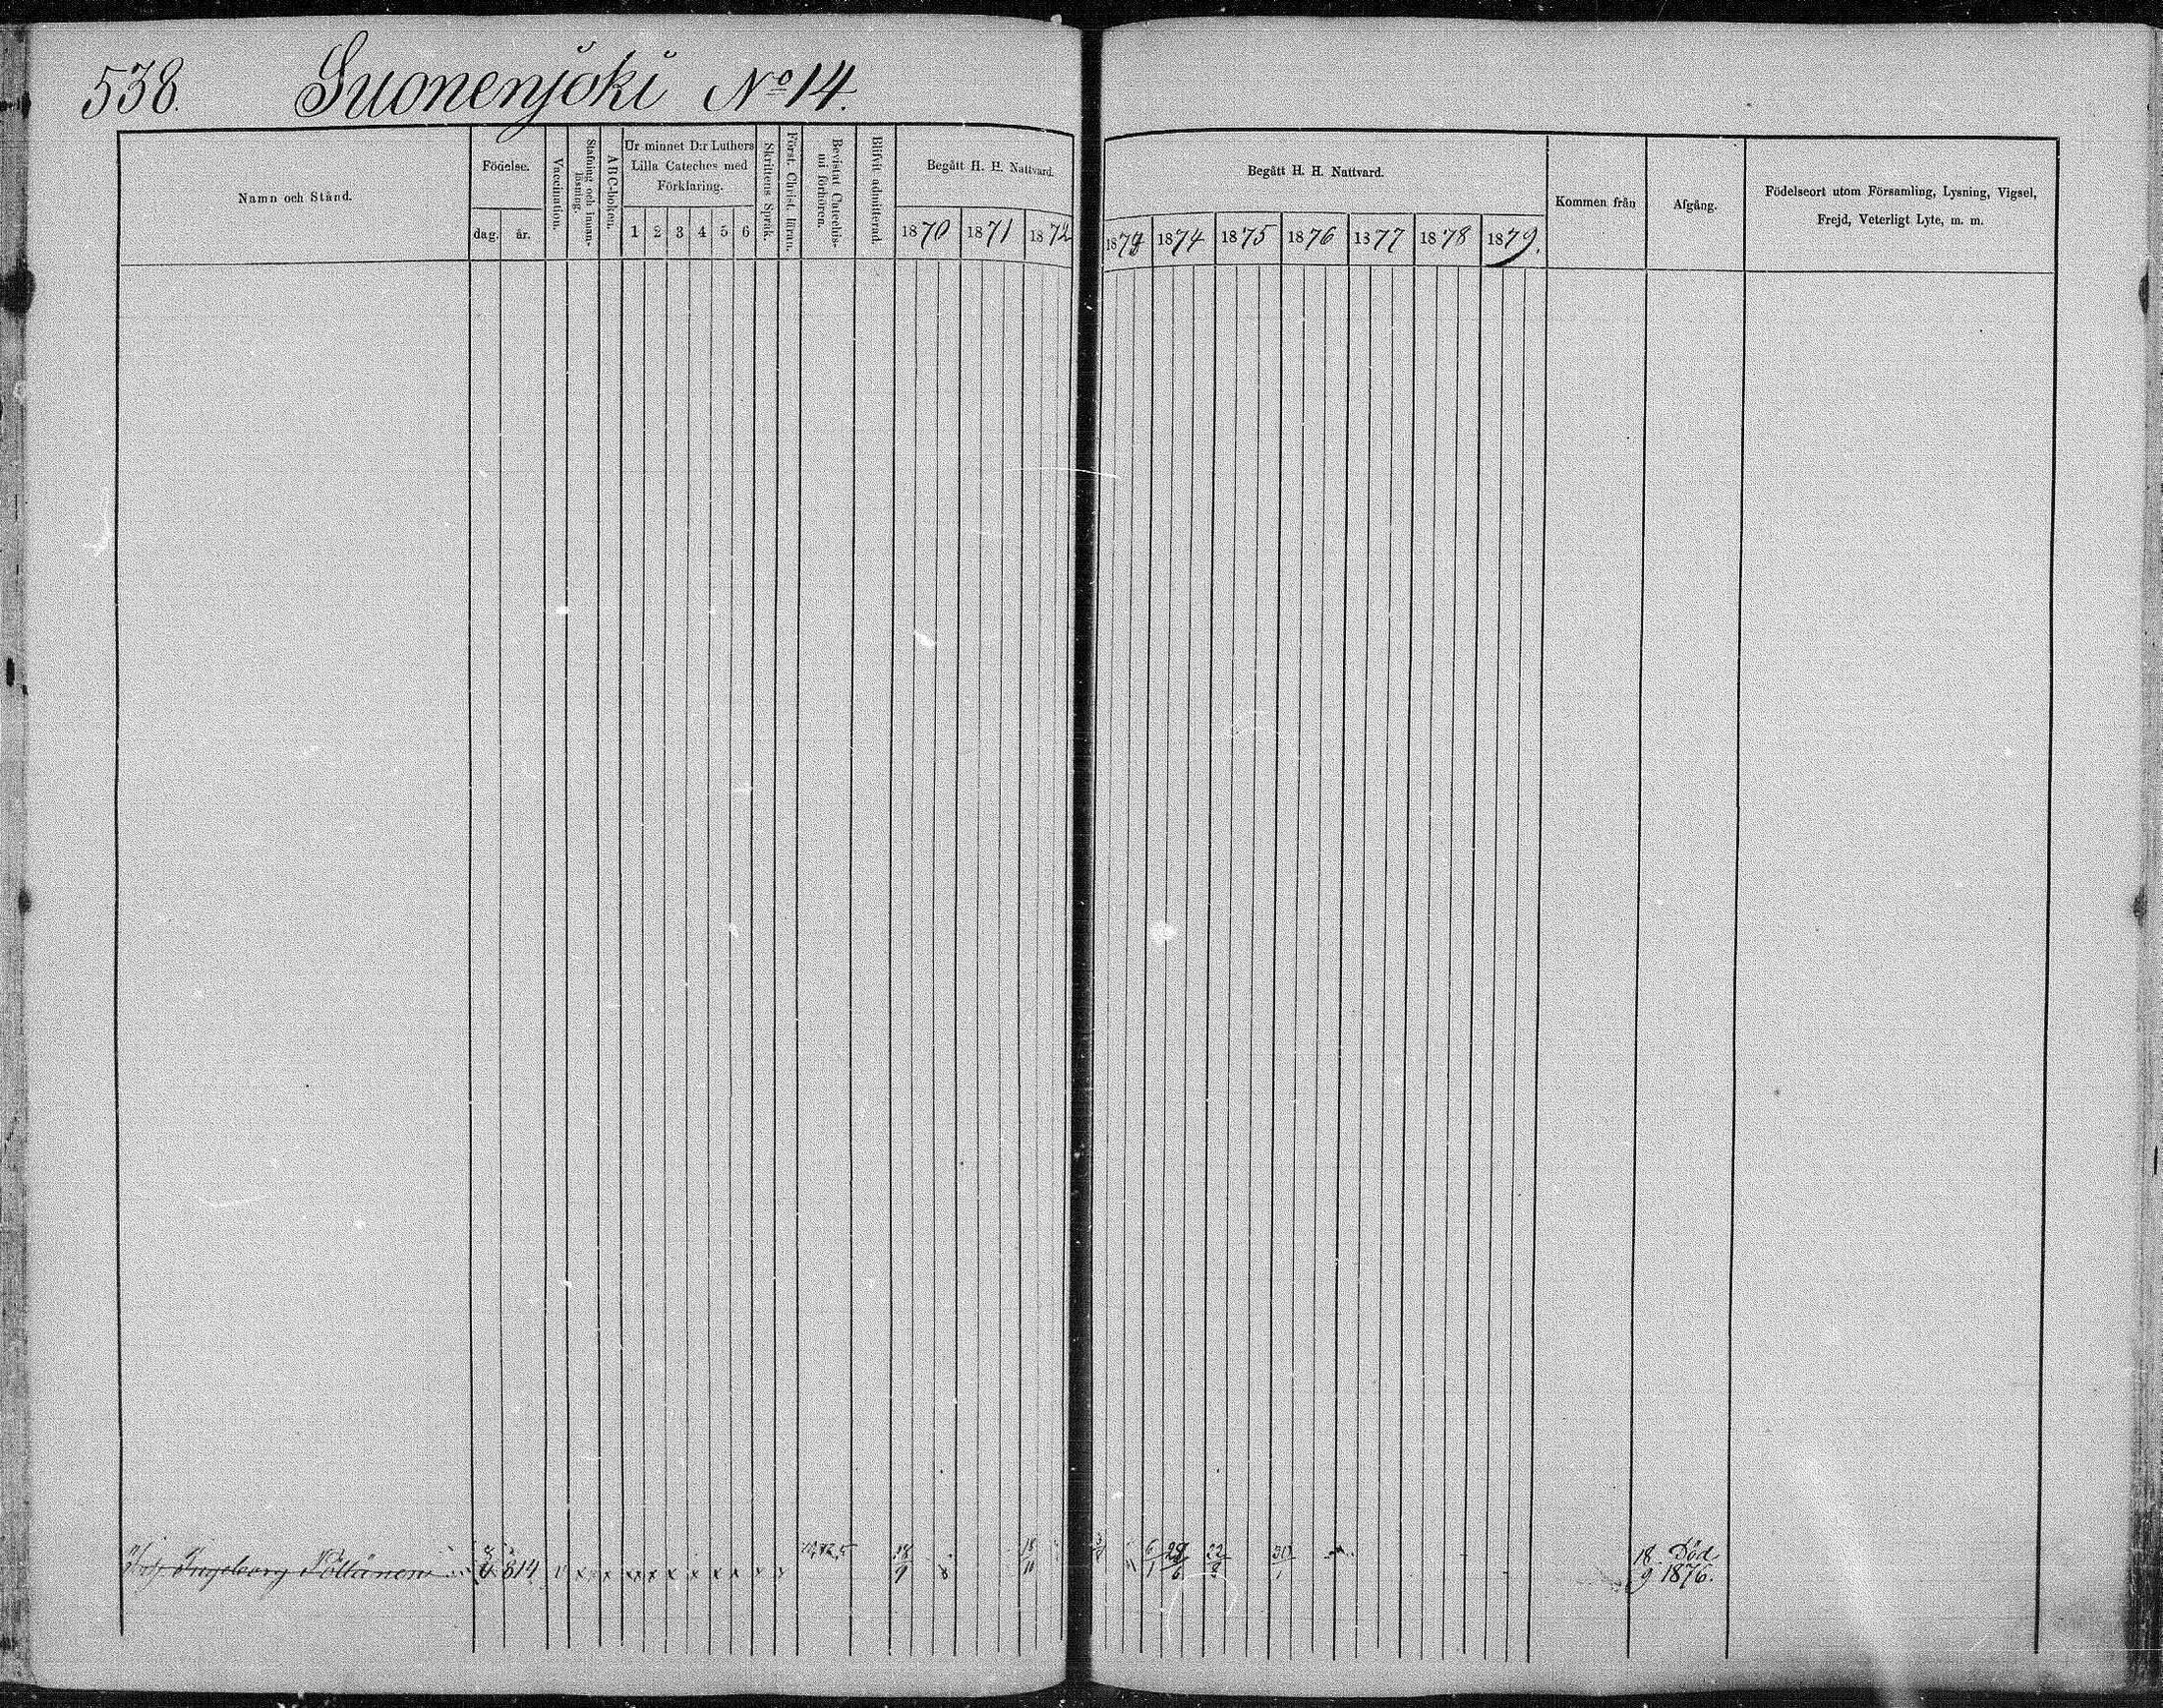 538. Suonenjoki No 14.
Namn och Stånd.
Födelse.
dag. år.
Vaccination.
Stafning och innan-
läsning.
ABC-boken.
Ur minnet D:r Luthers
Lilla Cateches med
Förklaring.
1 2 3 4 5 6
Skriftens Språk.
Först. Christ. läran.
Bevistat Catechis-
mi förhören.
Blifvit admitterad.
Begått H. H. Nattvard.
1870 1871 1872
Begått H. H. Nattvard.
1873 1874 1875 1876 1877 1878 1879.
Kommen från
Afgång.
Födelseort utom Församling, Lysning, Vigsel,
Frejd, Veterligt Lyte, m. m.
Ingeborg Pöllänen 814 v x x x x x x x x
18/9 18/10 6/1 28/6 30/1
18 Död
9 1876.